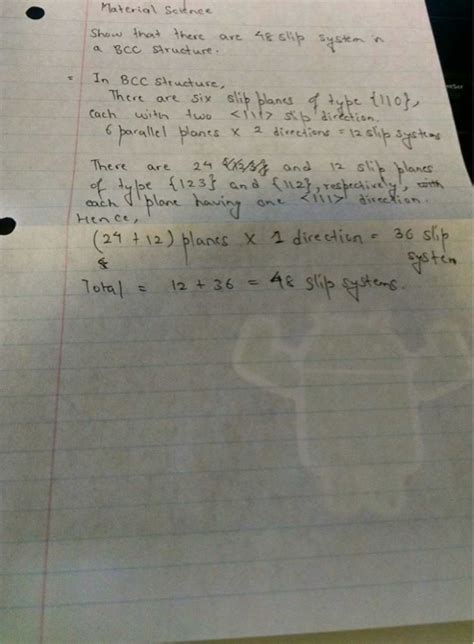 Material Science
Show that there are 48 slip system in
a BCC structure.
= In BCC structure,
There are six slip planes of type {110},
each with two <111> slip direction.
6 parallel planes X 2 directions = 12 slip systems
There are 24 and 12 slip planes
of type {123} and {112}, respectively, with
each plane having one <111> direction.
Hence,
(24 + 12) planes X 1 direction = 36 slip
system
Total = 12 + 36 = 48 slip systems.